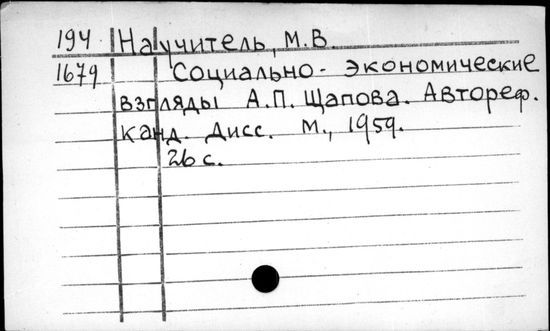 194 Научитель, М.В.
1679 Социально- экономические
взгляды А.П. Щапова. Автореф.
канд. Дисс. М., 1959.
26 с.